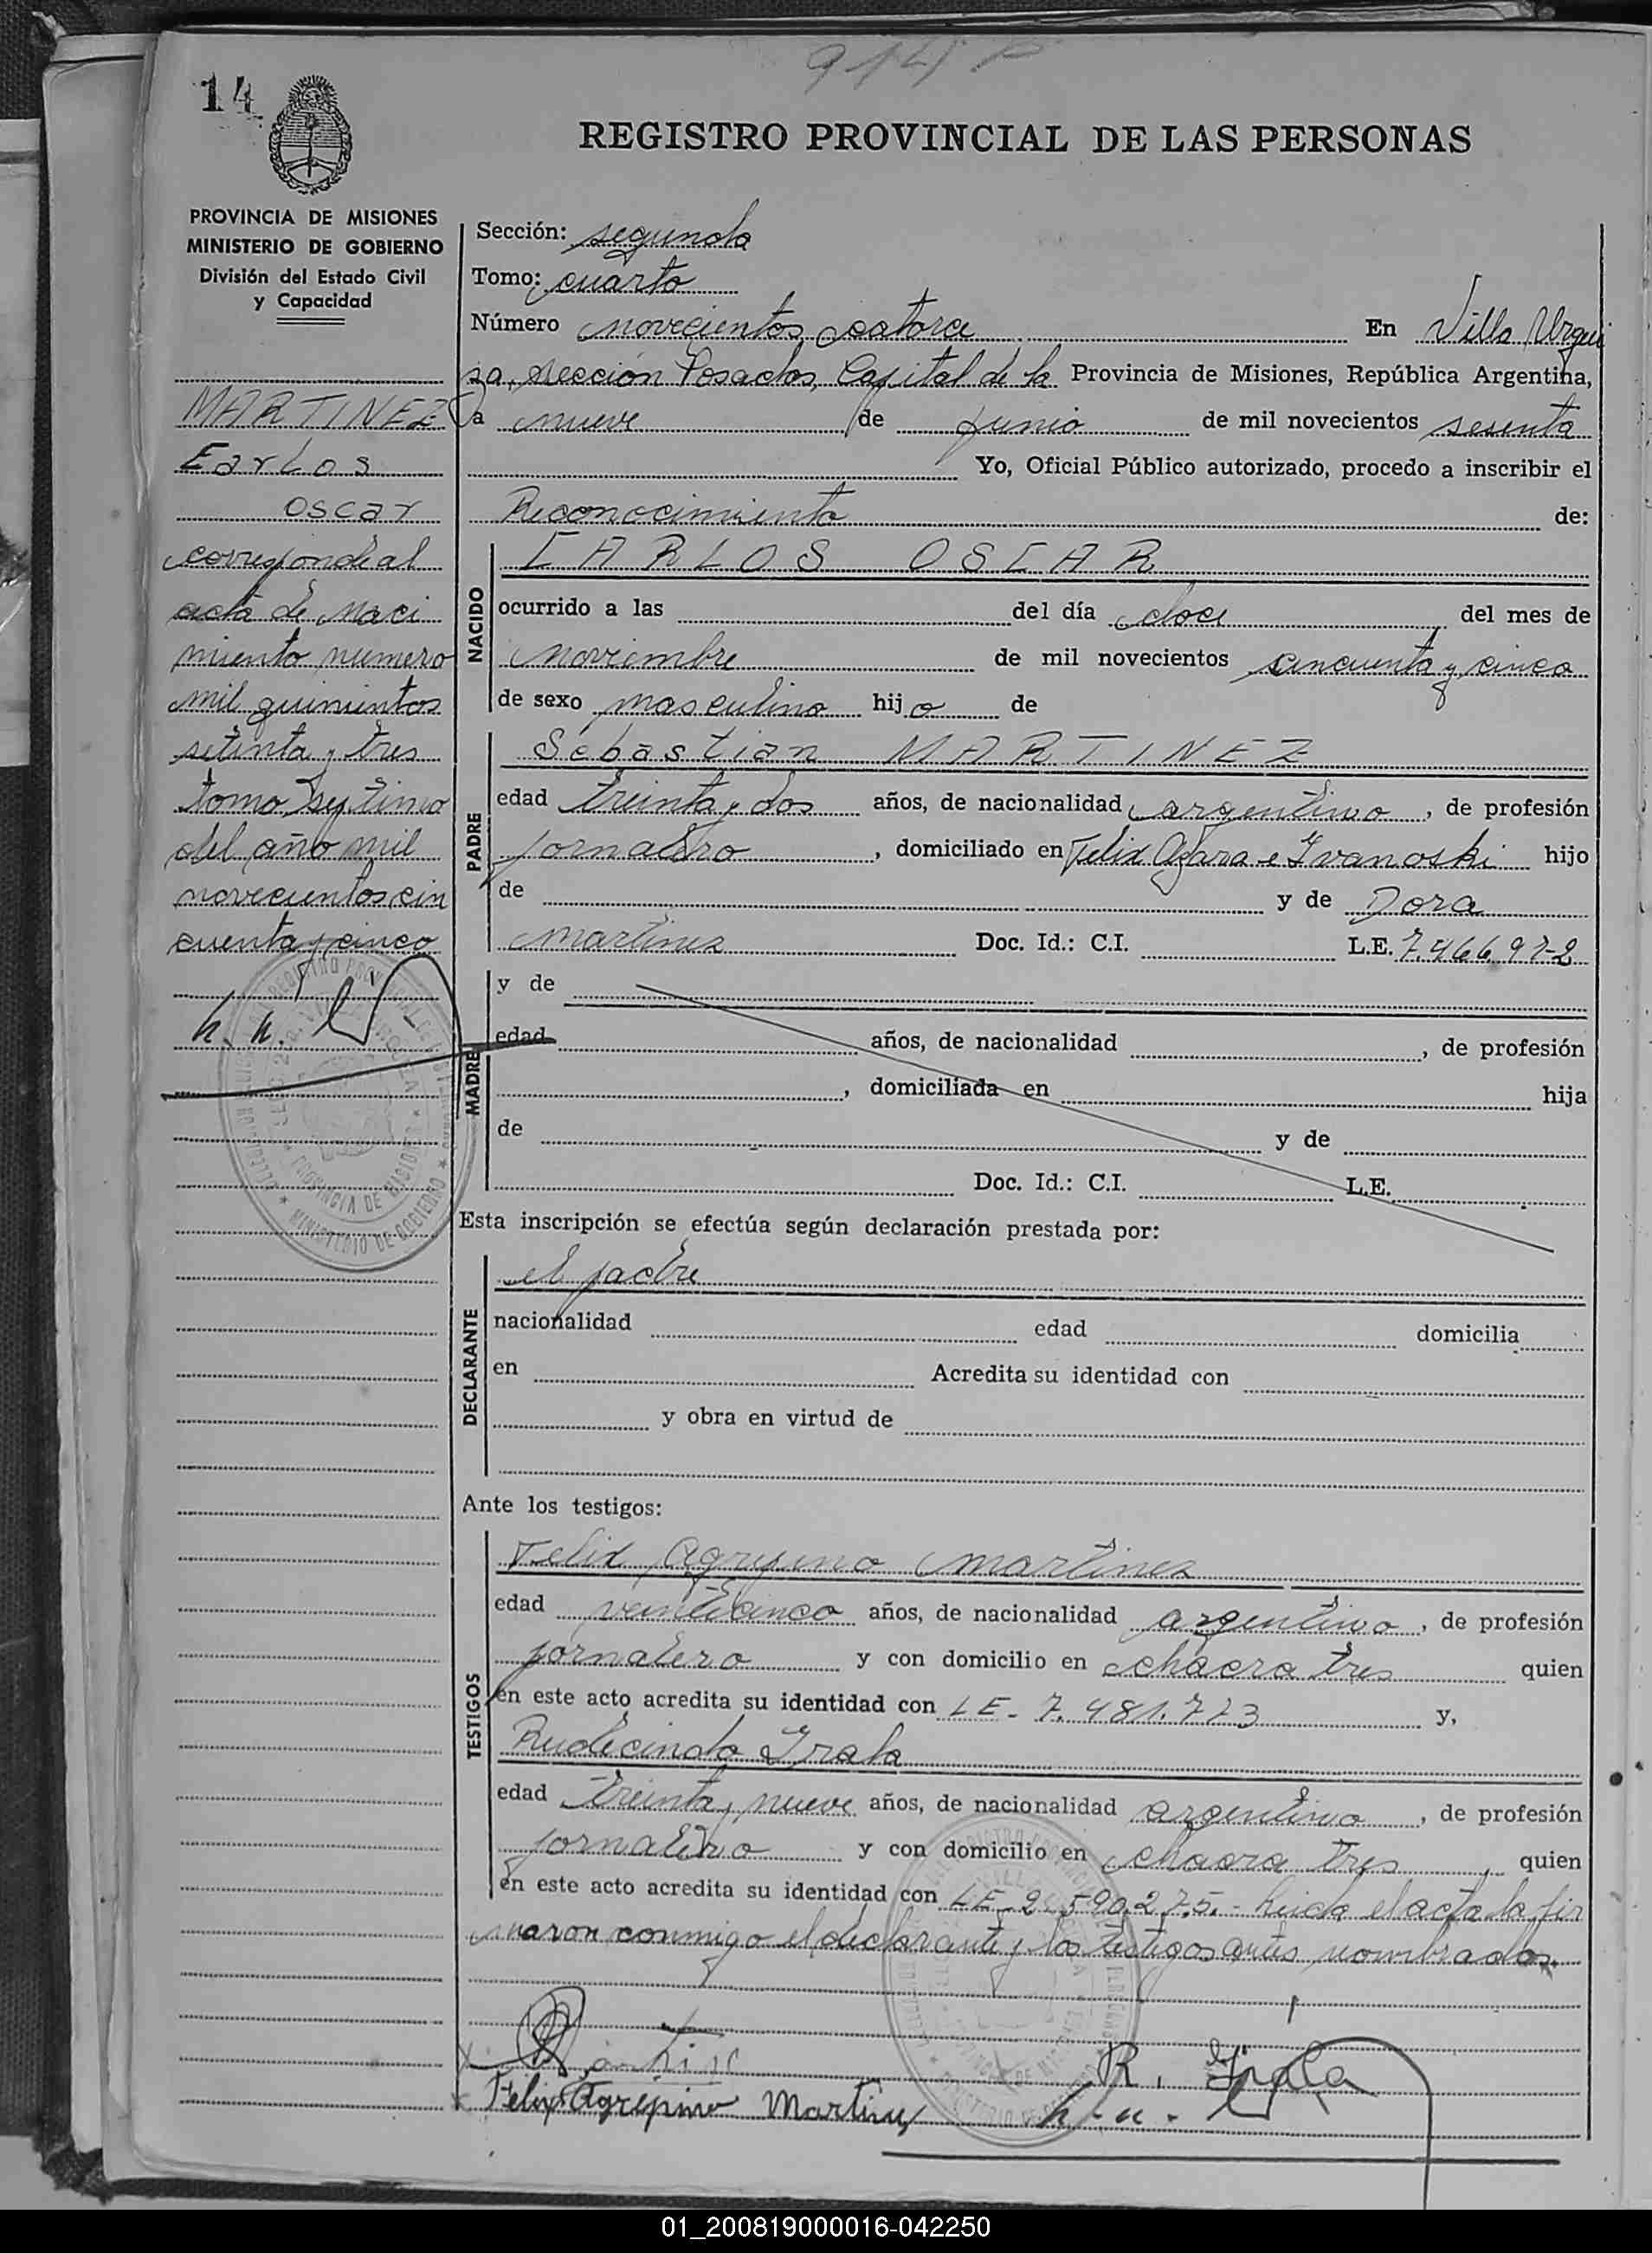 914 P
14
REGISTRO PROVINCIAL DE LAS PERSONAS
PROVINCIA DE MISIONES
MINISTERIO DE GOBIERNO
División del Estado Civil
y Capacidad
MARTINEZ
Carlos
Oscar
corresponde al
acta de naci
miento numero
mil quinientos
setenta y tres
tomo septimo
del año mil
novecientos cin
cuenta y cinco
Sección: segunda
Tomo: cuarto
Número novecientos catorce En Villa Urqui
za, sección Posadas, Capital de la Provincia de Misiones, República Argentina,
a nueve de junio de mil novecientos sesenta
Yo, Oficial Público autorizado, procedo a inscribir el
Reconocimiento de:
NACIDO
CARLOS OSCAR
ocurrido a las del día doce del mes de
noviembre de mil novecientos cincuenta y cinco
de sexo masculino hijo de
PADRE
Sebastian MARTINEZ
edad treinta y dos años, de nacionalidad argentino, de profesión
jornalero, domiciliado en Felix Azara e Ivanoski hijo
de y de Dora
Martinez Doc. Id.: C.I. L.E. 7.466.972
MADRE
y de
edad años, de nacionalidad , de profesión
, domiciliada en hija
de y de
Doc. Id.: C.I. L.E.
Esta inscripción se efectúa según declaración prestada por:
DECLARANTE
el padre
nacionalidad edad domicilia
en Acredita su identidad con
y obra en virtud de
Ante los testigos:
TESTIGOS
Felix Agripino Martinez
edad veinticinco años, de nacionalidad argentino, de profesión
jornalero y con domicilio en chacra tres quien
en este acto acredita su identidad con LE - 7.481.773 y,
Rudecindo Irala
edad treinta y nueve años, de nacionalidad argentino, de profesión
jornalero y con domicilio en chacra tres, quien
en este acto acredita su identidad con LE - 2.590.275.- Leida el acta la fir
maron conmigo el declarante y los testigos antes nombrados.
R. Irala
Felix Agrepino Martinez
01_200819000016-042250